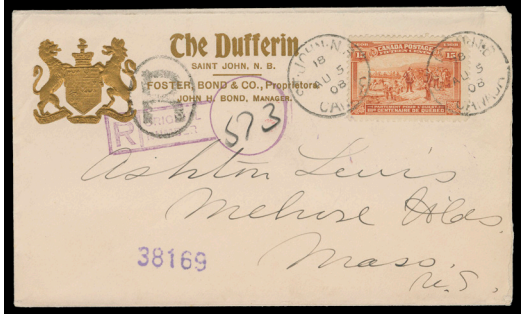 The Dufferin
SAINT JOHN, N. B.
FOSTER, BOND & CO., Proprietors.
JOHN H. BOND, MANAGER.
ST. JOHN, N.B.
18
AU 5
08
CANADA
CANADA POSTAGE
15 15
AU 5
08
CANADA
R
573
Ashton Lewis
Melrose Hlds.
Mass.
U.S.
38169